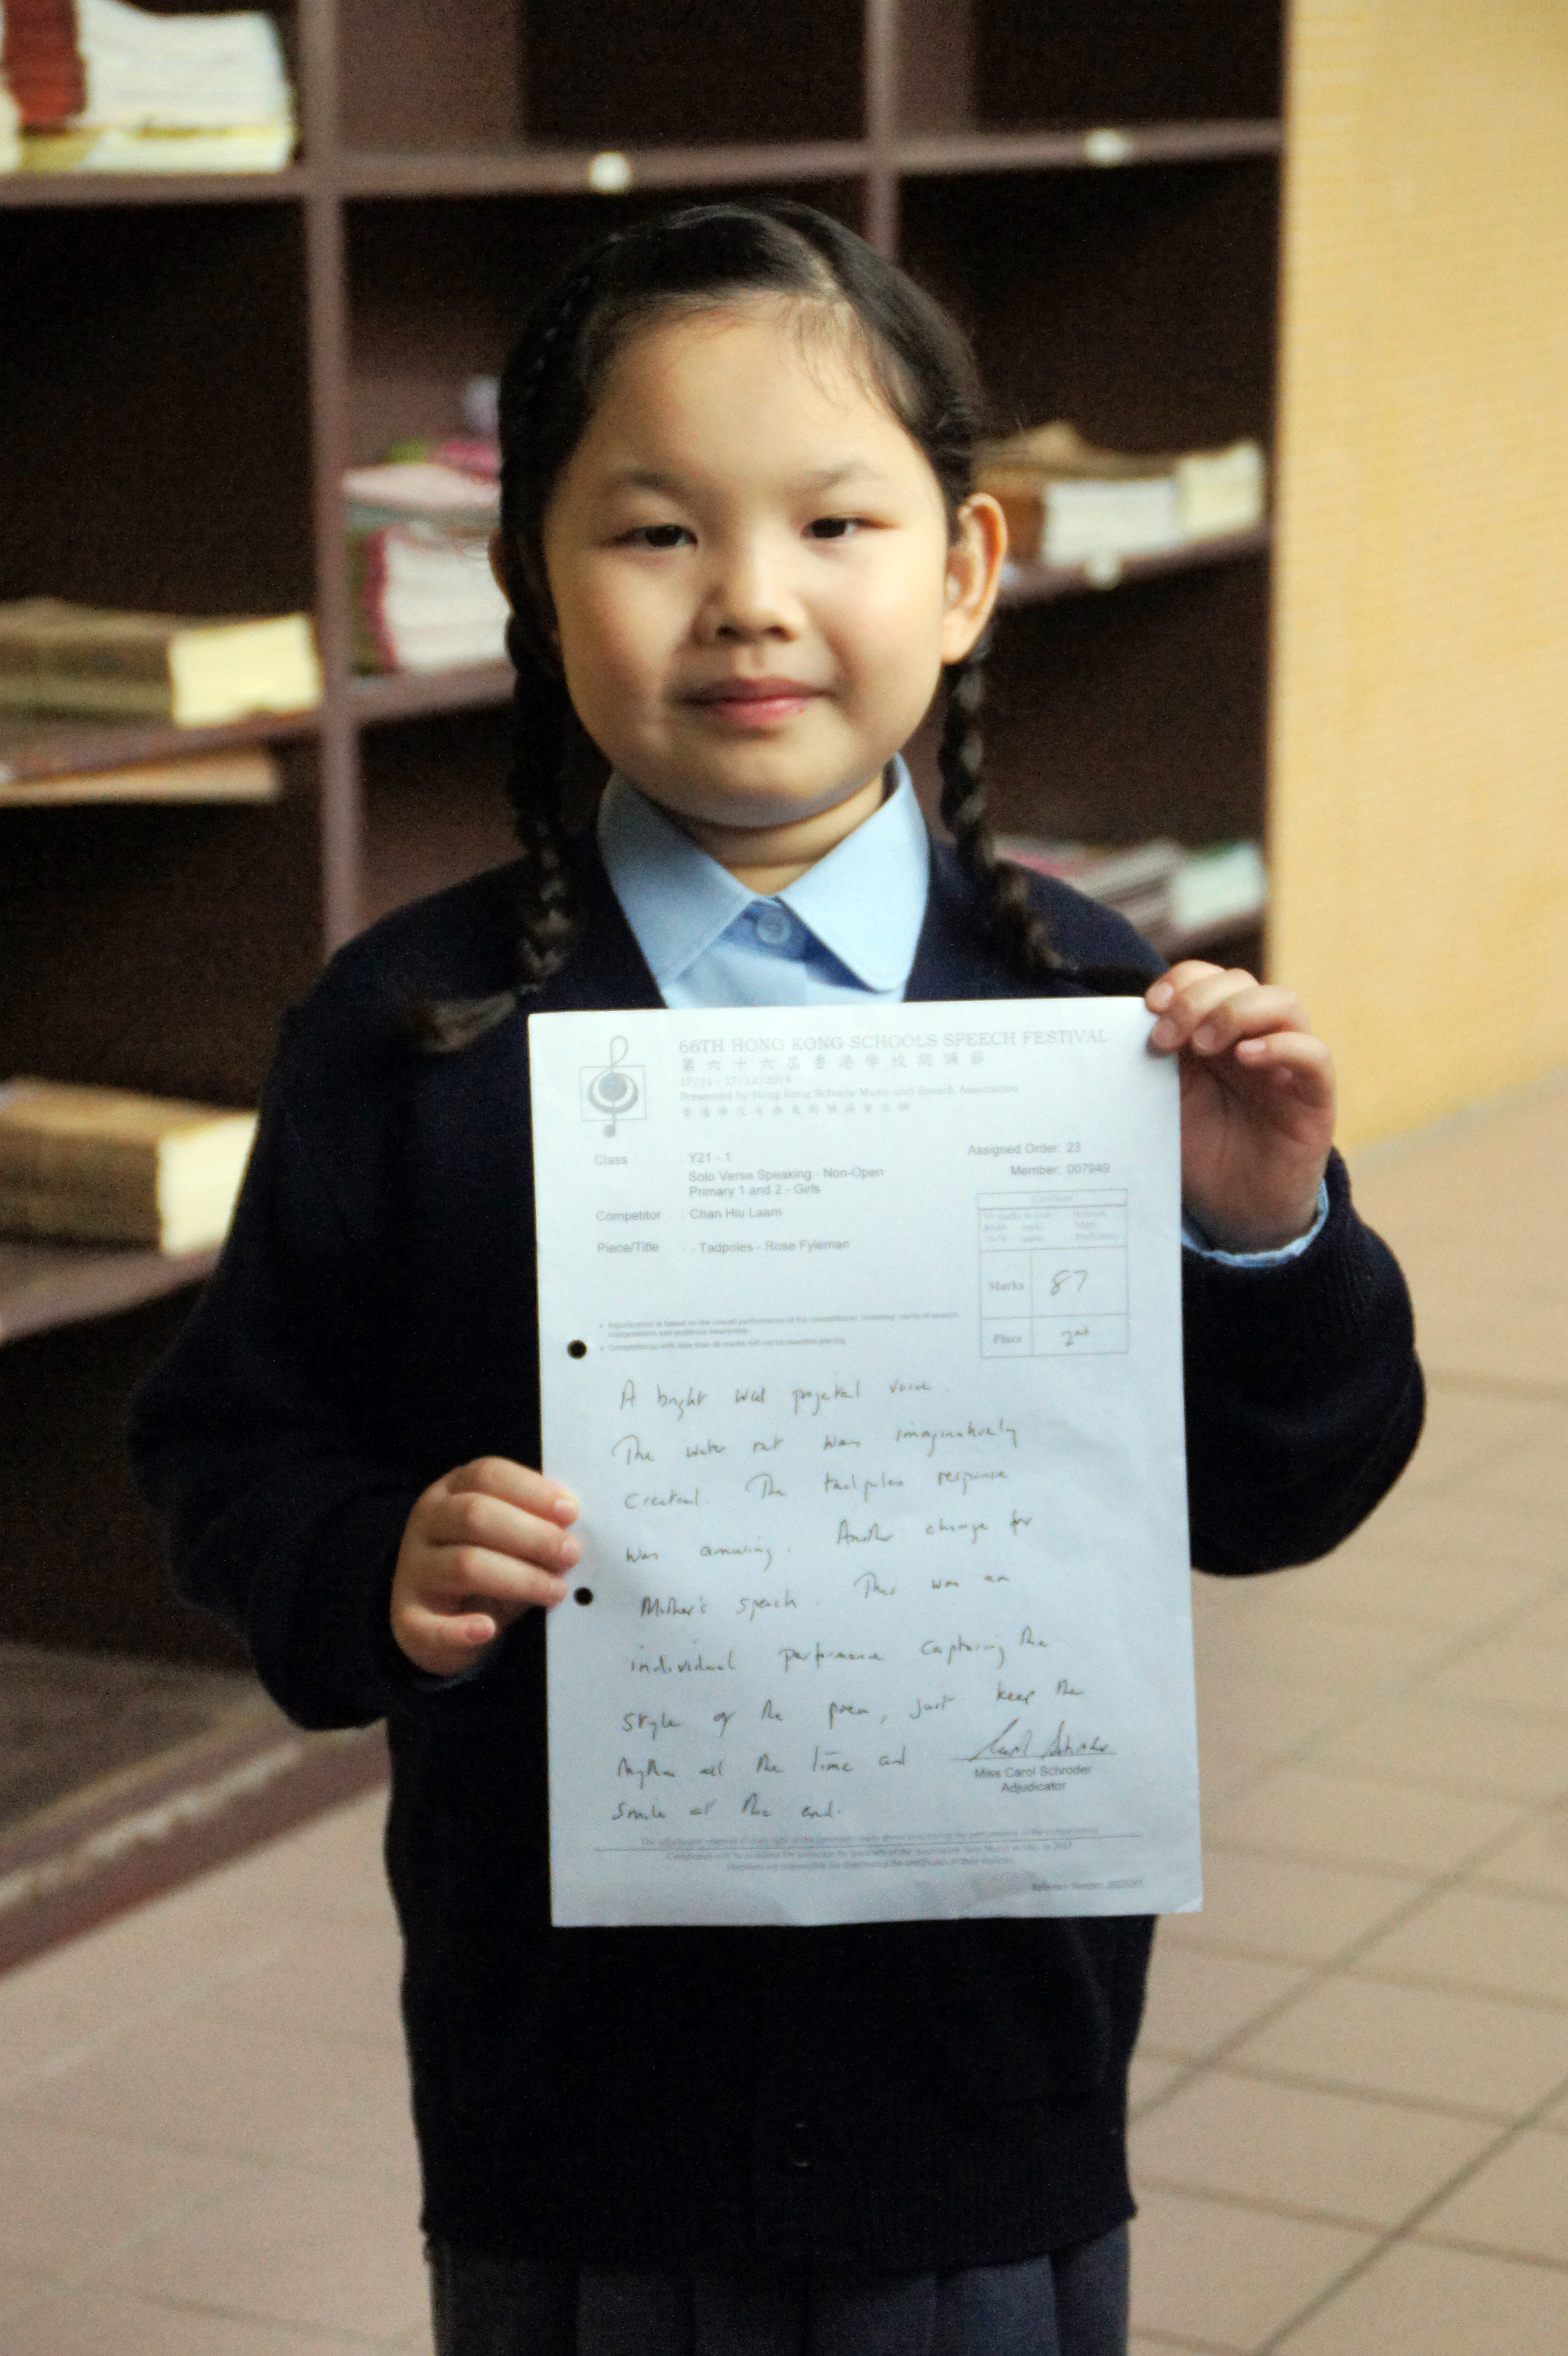 66TH HONG KONG SCHOOLS SPEECH FESTIVAL
第六十六屆香港學校朗誦節
17/11 - 17/12/2014
Presented by Hong Kong Schools Music and Speech Association
香港學校音樂及朗誦協會主辦
Class : Y21 - 1 Assigned Order: 23
Solo Verse Speaking - Non-Open Member: 007949
Primary 1 and 2 - Girls
Certificate
Competitor : Chan Hiu Laam
Piece/Title : - Tadpoles - Rose Fyleman
Marks 87
Place 2nd
Adjudication is based on the overall performance of the competitor(s), including clarity of speech, interpretation and audience awareness.
Competitor(s) with less than 80 marks will not be awarded placing.
A bright well projected voice.
The water rat was imaginatively
created. The tadpoles response
was amusing. Another change for
Mother's speech. This was an
individual performance capturing the
style of the poem, just keep the
rhythm all the time and
smile at the end.
Carol Schroder
Miss Carol Schroder
Adjudicator